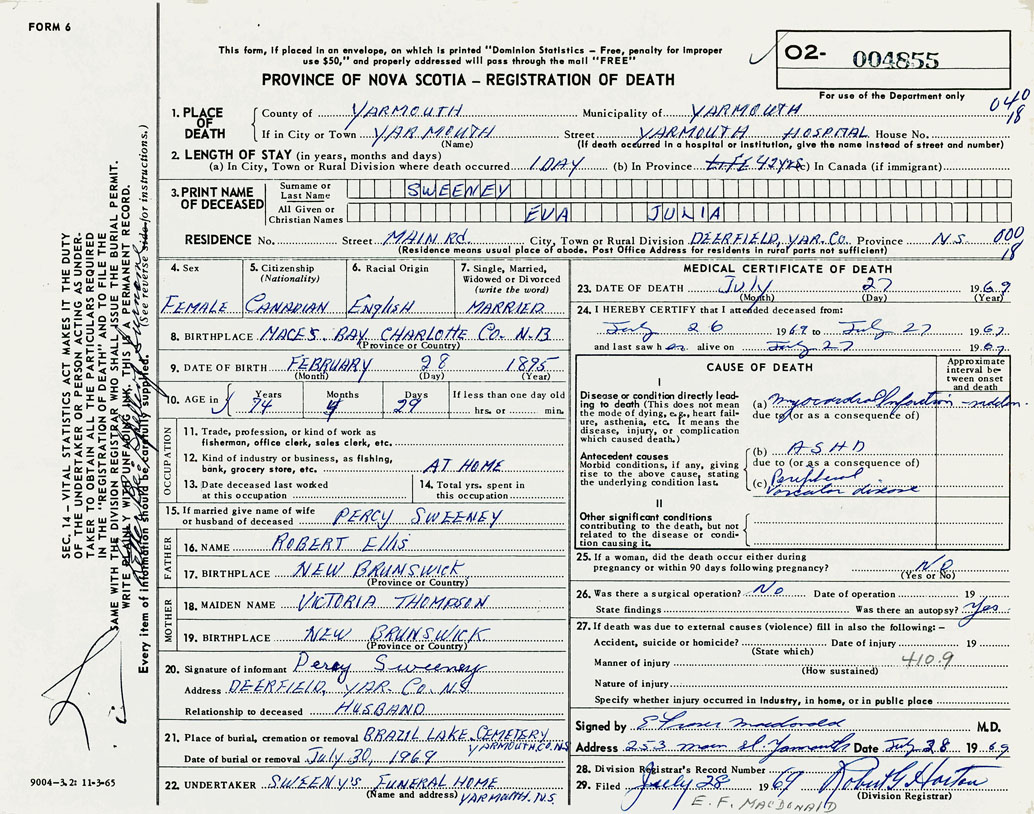 FORM 6
This form, if placed in an envelope, on which is printed "Dominion Statistics – Free, penalty for improper
use $50," and properly addressed will pass through the mail "FREE"
PROVINCE OF NOVA SCOTIA – REGISTRATION OF DEATH
O2- 004855
For use of the Department only
040
18
1. PLACE OF DEATH
County of YARMOUTH Municipality of YARMOUTH
If in City or Town YARMOUTH Street YARMOUTH HOSPITAL House No.
(Name) (If death occurred in a hospital or institution, give the name instead of street and number)
2. LENGTH OF STAY (in years, months and days)
(a) In City, Town or Rural Division where death occurred 1 DAY (b) In Province LIFE 42 yrs (c) In Canada (if immigrant)
3. PRINT NAME OF DECEASED
Surname or Last Name SWEENEY
All Given or Christian Names EVA JULIA
RESIDENCE No. Street MAIN Rd. City, Town or Rural Division DEERFIELD, YAR. CO. Province N.S. 000
18
(Residence means usual place of abode. Post Office Address for residents in rural parts not sufficient)
4. Sex
FEMALE
5. Citizenship
(Nationality)
CANADIAN
6. Racial Origin
English
7. Single, Married,
Widowed or Divorced
(write the word)
MARRIED
8. BIRTHPLACE MACES BAY, CHARLOTTE CO. N.B
(Province or Country)
9. DATE OF BIRTH FEBRUARY 28 1895
(Month) (Day) (Year)
10. AGE in
Years Months Days If less than one day old
74 4 29 hrs. or min.
OCCUPATION
11. Trade, profession, or kind of work as
fisherman, office clerk, sales clerk, etc.
12. Kind of industry or business, as fishing,
bank, grocery store, etc. AT HOME
13. Date deceased last worked
at this occupation
14. Total yrs. spent in
this occupation
15. If married give name of wife
or husband of deceased PERCY SWEENEY
FATHER
16. NAME ROBERT Ellis
17. BIRTHPLACE NEW BRUNSWICK
(Province or Country)
MOTHER
18. MAIDEN NAME VICTORIA THOMPSON
19. BIRTHPLACE NEW BRUNSWICK
(Province or Country)
20. Signature of informant Percy Sweeney
Address DEERFIELD, YAR. CO. N.S.
Relationship to deceased HUSBAND
21. Place of burial, cremation or removal BRAZIL LAKE CEMETERY
YARMOUTH CO. N.S
Date of burial or removal July 30, 1969
22. UNDERTAKER SWEENY'S FUNERAL HOME
(Name and address) YARMOUTH. N.S.
MEDICAL CERTIFICATE OF DEATH
23. DATE OF DEATH July 27 1969
(Month) (Day) (Year)
24. I HEREBY CERTIFY that I attended deceased from:
July 26 1969 to July 27 1969
and last saw her alive on July 27 1969
CAUSE OF DEATH
Approximate
interval be-
tween onset
and death
I
Disease or condition directly lead-
ing to death (This does not mean
the mode of dying, e.g., heart fail-
ure, asthenia, etc. It means the
disease, injury, or complication
which caused death.)
(a) myocardial Infarction - sudden
due to (or as a consequence of)
Antecedent causes
Morbid conditions, if any, giving
rise to the above cause, stating
the underlying condition last.
(b) A S H D
due to (or as a consequence of)
(c) Peripheral
Vascular disease
II
Other significant conditions
contributing to the death, but not
related to the disease or condi-
tion causing it.
25. If a woman, did the death occur either during
pregnancy or within 90 days following pregnancy? No
(Yes or No)
26. Was there a surgical operation? No Date of operation 19
State findings Was there an autopsy? Yes
27. If death was due to external causes (violence) fill in also the following: –
Accident, suicide or homicide? Date of injury 19
(State which)
Manner of injury 410.9
(How sustained)
Nature of injury
Specify whether injury occurred in industry, in home, or in public place
Signed by Macdonald M.D.
Address 253 main st. Yarmouth Date July 28 1969
28. Division Registrar's Record Number
29. Filed July 28 1969 Robert G Horton
(Division Registrar)
E. F. MACDONALD
SEC. 14 – VITAL STATISTICS ACT MAKES IT THE DUTY
OF THE UNDERTAKER OR PERSON ACTING AS UNDER-
TAKER TO OBTAIN ALL THE PARTICULARS REQUIRED
IN THE "REGISTRATION OF DEATH" AND TO FILE THE
SAME WITH THE DIVISION REGISTRAR WHO SHALL ISSUE THE BURIAL PERMIT.
WRITE PLAINLY WITH UNFADING INK. THIS IS A PERMANENT RECORD.
Every item of information should be carefully supplied. (See reverse side for instructions.)
9004–3.2: 11-3-65